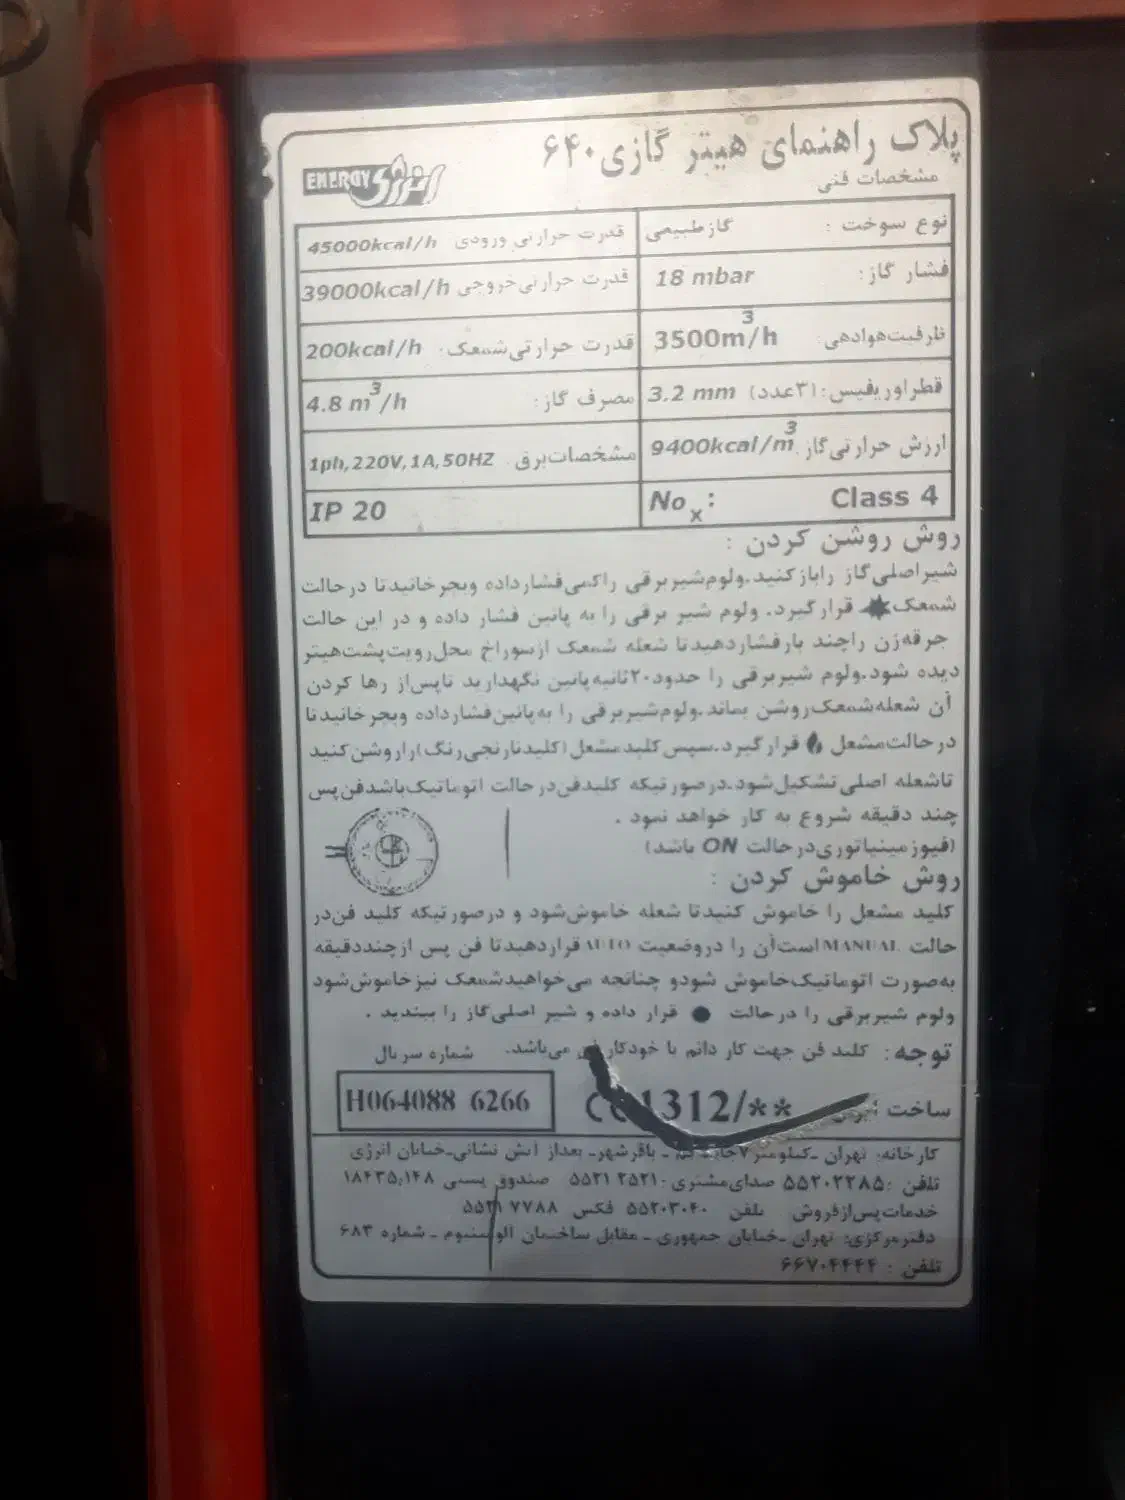 پلاک راهنمای هیتر گازی ۶۴۰
ENERGY انرژی
مشخصات فنی
نوع سوخت : گازطبیعی قدرت حرارتی ورودی 45000kcal/h
فشار گاز: 18 mbar قدرت حرارتی خروجی 39000kcal/h
ظرفیت هوادهی: 3500m³/h قدرت حرارتی شمعک: 200kcal/h
قطر اوریفیس: (۳عدد) 3.2 mm مصرف گاز: 4.8 m³/h
ارزش حرارتی گاز: 9400kcal/m³ مشخصات برق: 1ph,220V,1A,50HZ
Noₓ: Class 4 IP 20
روش روشن کردن :
شیر اصلی گاز را باز کنید. ولوم شیر برقی را کمی فشار داده و بچرخانید تا در حالت
شمعک قرار گیرد. ولوم شیر برقی را به پائین فشار داده و در این حالت
جرقه زن را چند بار فشار دهید تا شعله شمعک از سوراخ محل رویت پشت هیتر
دیده شود. ولوم شیر برقی را حدود ۲۰ ثانیه پائین نگهدارید تا پس از رها کردن
آن شعله شمعک روشن بماند. ولوم شیر برقی را به پائین فشار داده و بچرخانید تا
در حالت مشعل قرار گیرد. سپس کلید مشعل (کلید نارنجی رنگ) را روشن کنید
تا شعله اصلی تشکیل شود. در صورتیکه کلید فن در حالت اتوماتیک باشد فن پس
چند دقیقه شروع به کار خواهد نمود .
(فیوز مینیاتوری در حالت ON باشد)
روش خاموش کردن :
کلید مشعل را خاموش کنید تا شعله خاموش شود و در صورتیکه کلید فن در
حالت MANUAL است آن را در وضعیت AUTO قرار دهید تا فن پس از چند دقیقه
به صورت اتوماتیک خاموش شود و چنانچه می خواهید شمعک نیز خاموش شود
ولوم شیر برقی را در حالت ● قرار داده و شیر اصلی گاز را ببندید .
توجه: کلید فن جهت کار دائم یا خودکار می باشد. شماره سریال
ساخت 1312/** H064088 6266
کارخانه: تهران -کیلومتر ۷ - باقرشهر- بعد از آتش نشانی-خیابان انرژی
تلفن : ۵۵۲۰۲۲۸۵ صدای مشتری: ۵۵۲۱۲۵۲۱ صندوق پستی ۱۸۴۳۵٫۱۴۸
خدمات پس از فروش تلفن ۵۵۲۰۳۰۴۰ فکس ۵۵۲۱۷۷۸۸
دفتر مرکزی: تهران -خیابان جمهوری - مقابل ساختمان آلومینیوم - شماره ۶۸۳
تلفن : ۶۶۷۰۴۴۴۴